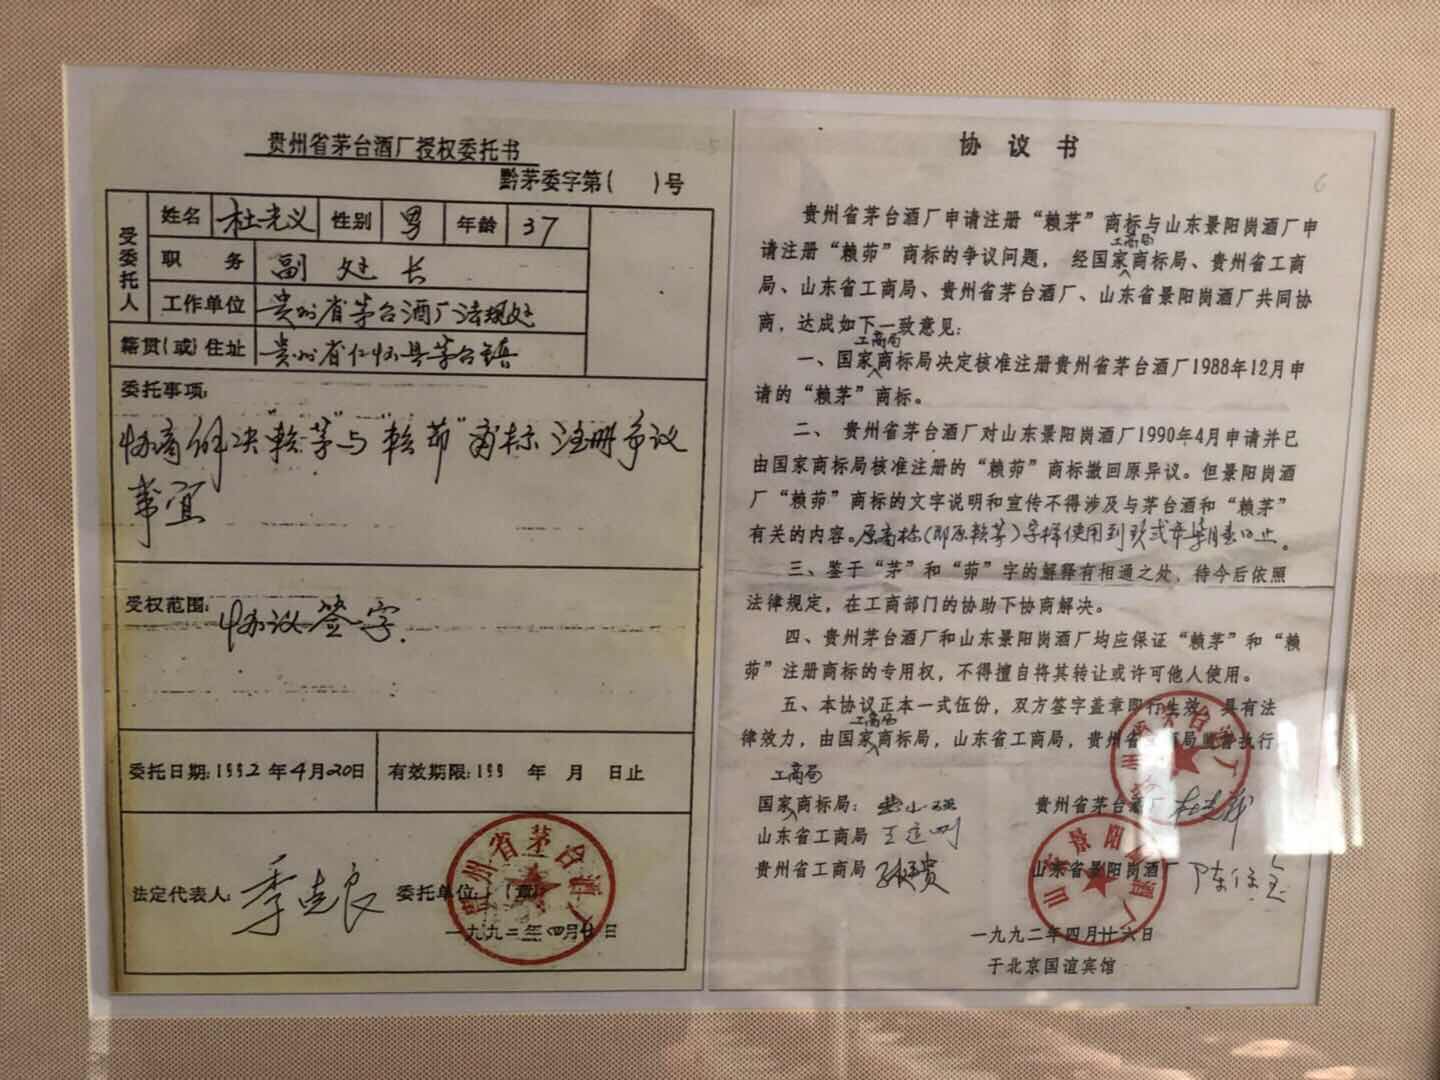 贵州省茅台酒厂授权委托书
黔茅委字第( )号
受委托人
姓名 杜光义 性别 男 年龄 37
职务 副处长
工作单位 贵州省茅台酒厂法规处
籍贯(或)住址 贵州省仁怀县茅台镇
委托事项:
协商解决“赖茅”与“赖茆”商标注册争议
事宜
受权范围: 协议签字.
委托日期:1992年4月20日 有效期限:199 年 月 日止
法定代表人: 季克良 委托单位: (章)
一九九二年四月廿日
贵州省茅台酒厂
协议书
6
贵州省茅台酒厂申请注册“赖茅”商标与山东景阳岗酒厂申
请注册“赖茆”商标的争议问题，经国家工商局商标局、贵州省工商
局、山东省工商局、贵州省茅台酒厂、山东省景阳岗酒厂共同协
商，达成如下一致意见:
一、国家工商局商标局决定核准注册贵州省茅台酒厂1988年12月申
请的“赖茅”商标。
二、贵州省茅台酒厂对山东景阳岗酒厂1990年4月申请并已
由国家商标局核准注册的“赖茆”商标撤回原异议。但景阳岗酒
厂“赖茆”商标的文字说明和宣传不得涉及与茅台酒和“赖茅”
有关的内容。原商标(即原赖茅)字样使用到玖贰年柒月壹日止。
三、鉴于“茅”和“茆”字的解释有相通之处，待今后依照
法律规定，在工商部门的协助下协商解决。
四、贵州茅台酒厂和山东景阳岗酒厂均应保证“赖茅”和“赖
茆”注册商标的专用权，不得擅自将其转让或许可他人使用。
五、本协议正本一式伍份，双方签字盖章即行生效，具有法
律效力，由国家工商局商标局，山东省工商局，贵州省工商局监督执行
国家工商局商标局: 贵州省茅台酒厂
山东省工商局
贵州省工商局 山东省景阳岗酒厂
一九九二年四月廿六日
于北京国谊宾馆